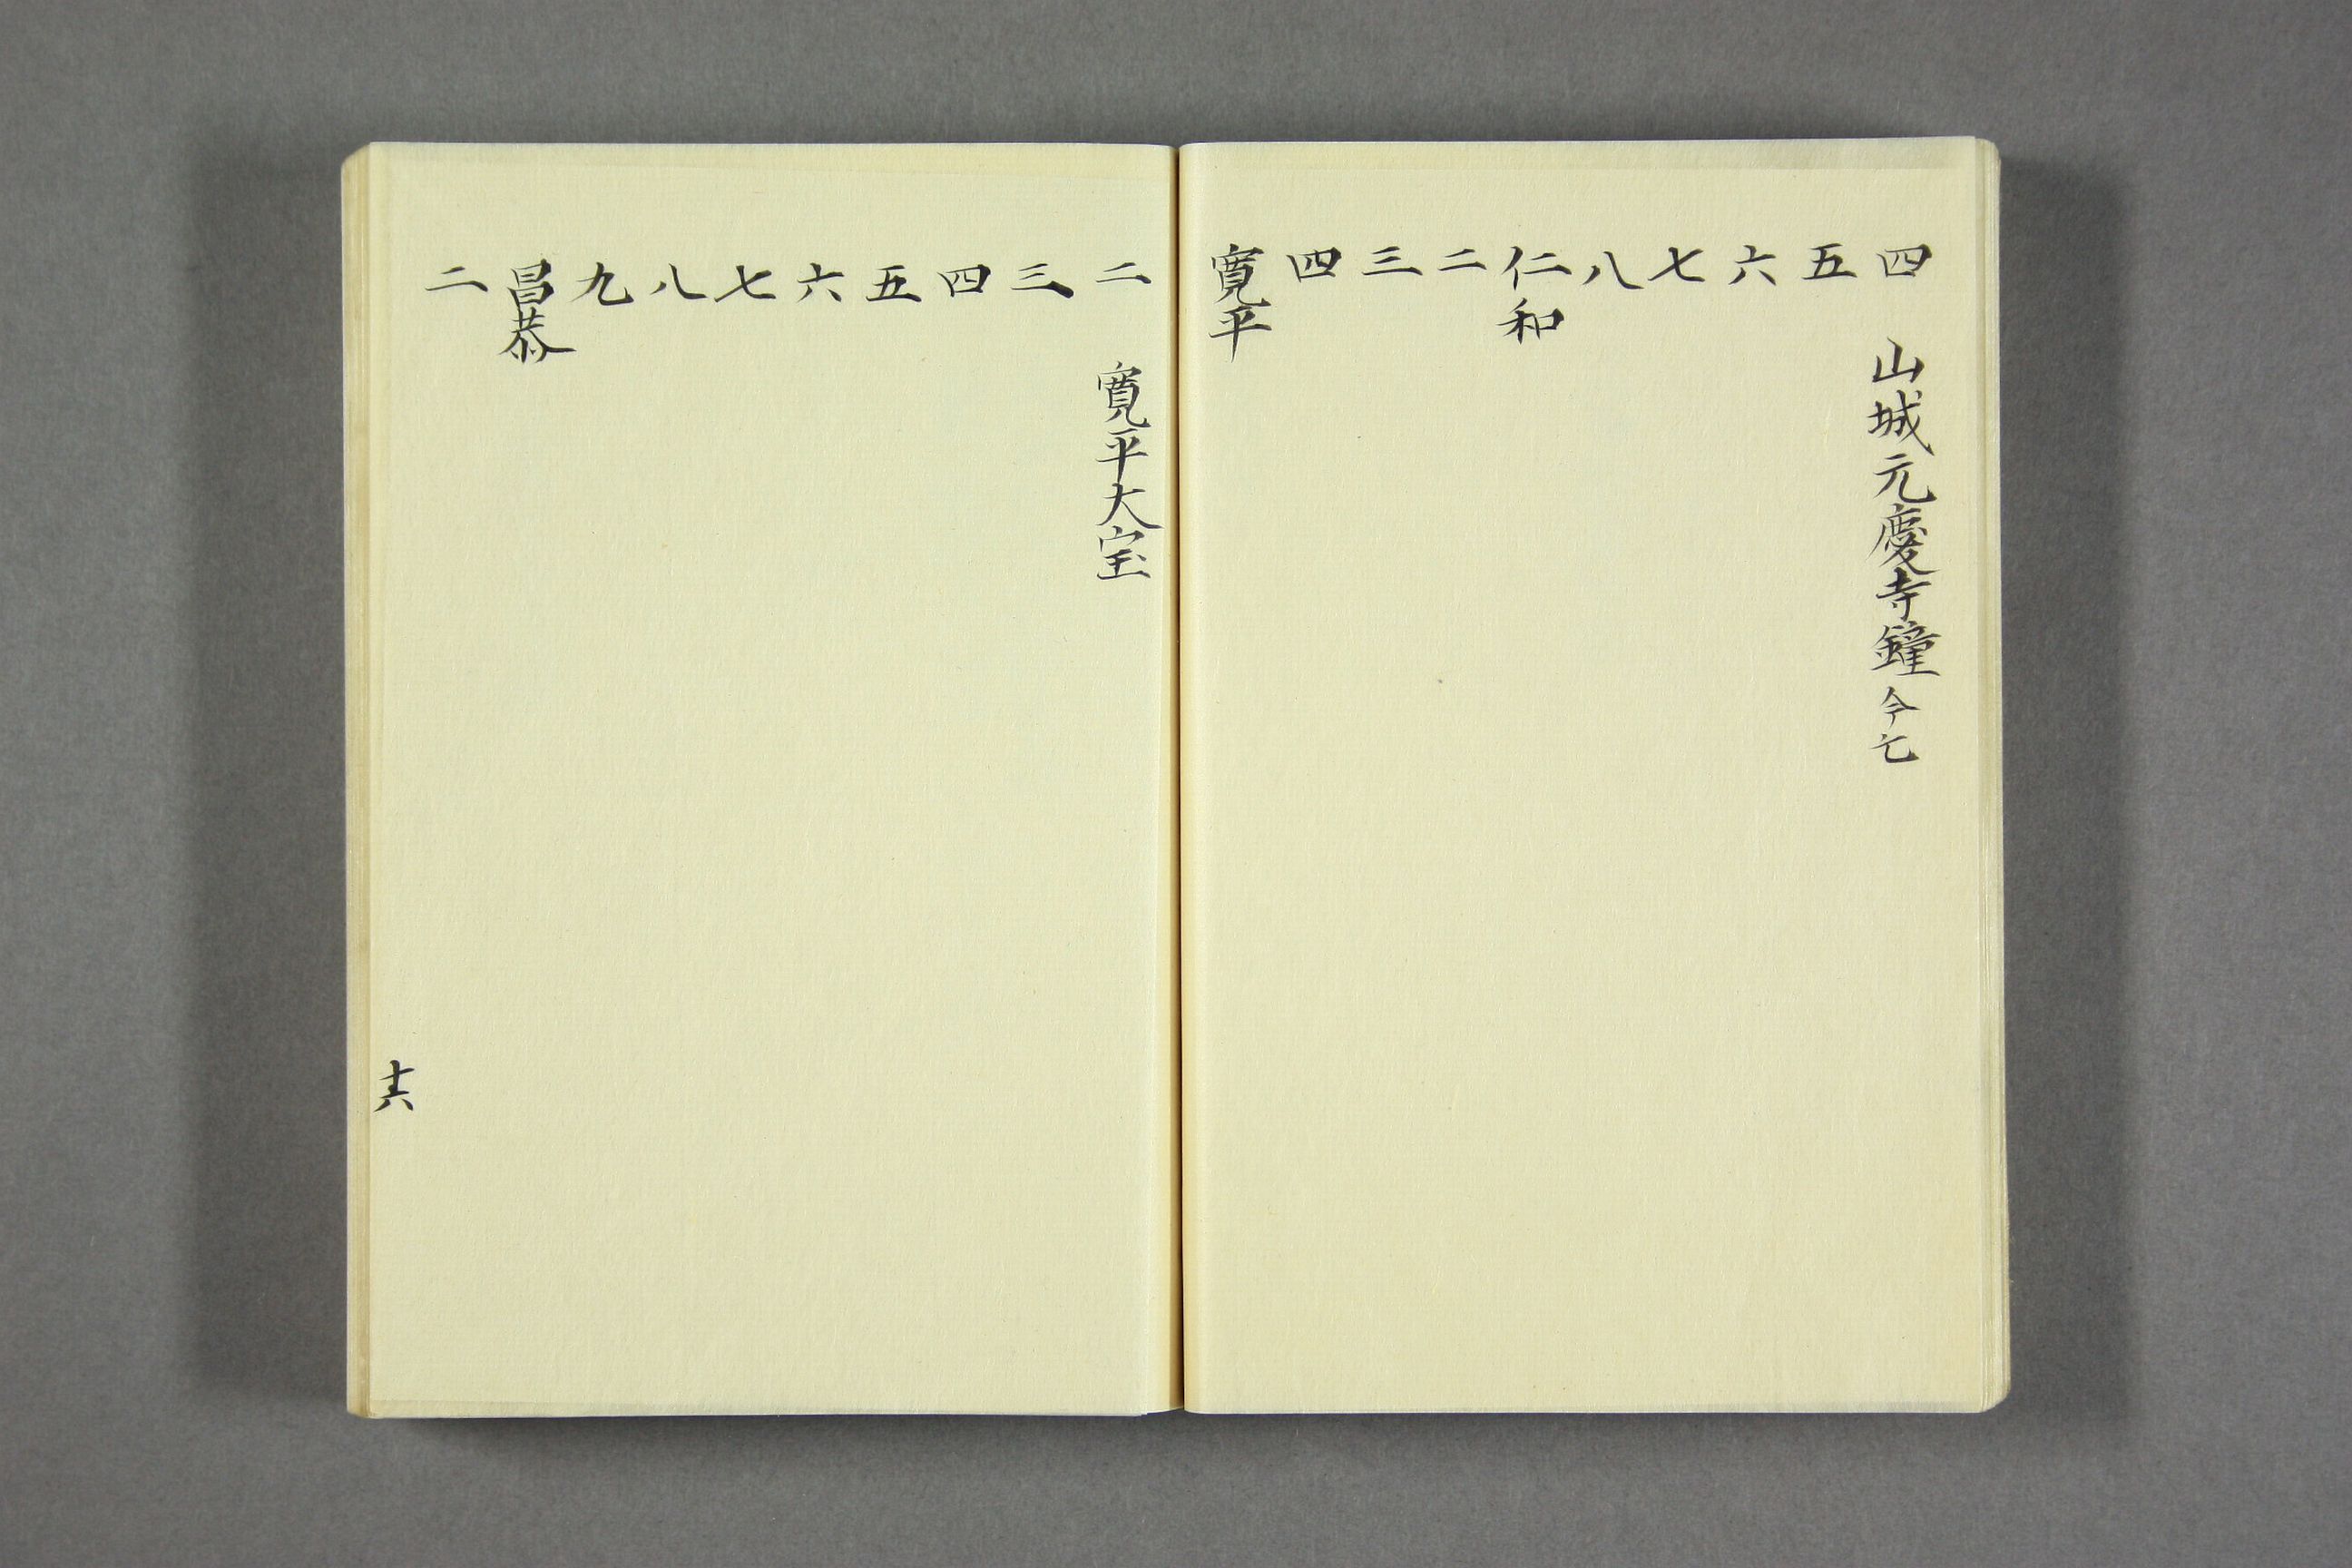 四 山城元慶寺鐘 今亡
五
六
七
八
仁和
二
三
四
寛平
二 寛平大宝
三
四
五
六
七
八
九
昌恭
二
十六